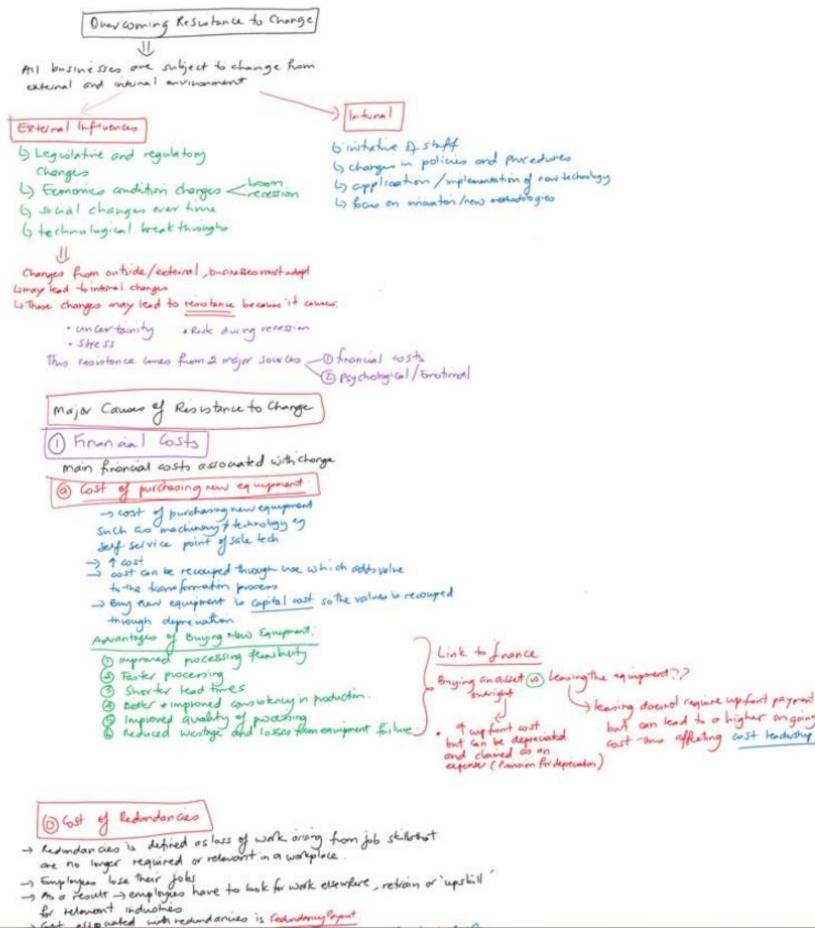 Overcoming Resistance to Change
All businesses are subject to change from
external and internal environment
External Influences
↳ Legislative and regulatory
changes
↳ Economics condition changes < boom
recession
↳ social changes over time
↳ technological breakthroughs
Internal
↳ initiative of staff
↳ changes in policies and procedures
↳ application/implementation of new technology
↳ focus on innovation/new methodologies
Changes from outside/external, businesses must adapt
↳ may lead to internal changes
↳ These changes may lead to resistance because it causes:
• uncertainity • Risk during recession
• stress
This resistance comes from 2 major sources ① financial costs
② psychological/Emotional
Major Causes of Resistance to Change
① Financial Costs
main financial costs associated with change
ⓐ Cost of purchasing new equipment
→ cost of purchasing new equipment
such as machinery + technology eg
self service point of sale tech
→ ↑ cost
→ cost can be recouped through use which adds value
to the transformation process
→ Buy new equipment is capital cost so the values is recouped
through depreciation
Advantages of Buying New Equipment:
① improved processing flexibility
② Faster processing
③ Shorter lead times
④ Better + improved consistency in production.
⑤ Improved quality of processing
⑥ Reduced wastage and losses from equipment failure
Link to finance
Buying an asset vs Leasing the equipment??
outright
• ↑ upfront cost
but can be depreciated
and claimed as an
expense (Provision for depreciation)
→ leasing does not require upfront payment
but can lead to a higher ongoing
cost thus affecting cost leadership
ⓑ Cost of Redundancies
→ Redundancies is defined as loss of work arising from job skills that
are no longer required or relevant in a workplace.
→ Employees lose their jobs
→ As a result → employees have to look for work elsewhere, retrain or 'upskill'
for relevant industries
→ Cost associated with redundancies is redundancy payout